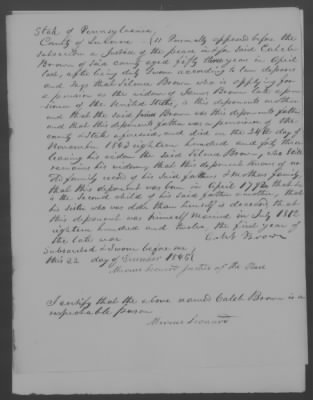 State of Pennsylvania,
County of Luzerne } Personally appeared before the
subscriber a Justice of the peace in & for said Caleb
Brown of said county aged fifty three years in April
last, after being duly sworn according to law deposes
and says that Silence Brown who is applying for
a pension as the widow of James Brown late a pen-
sioner of the United States, is this deponents mother
and that the said James Brown was this deponents father
and that this deponents father was a pensioner of the
county & State aforesaid, and died on the 24th day of
November 1843 eighteen hundred and forty three
leaving his widow the said Silence Brown, who still
remains his widow, that this deponent knows of no
family record of his said father & mothers family,
that this deponent was born in April 1792 that he
is the second child of his said father & mother, that
his sister who was older than himself is deceased that
this deponent was himself married in July 1812
eighteen hundred and twelve, the first year of
the late war
Caleb Brown
Subscribed & sworn before me
this 22 day of December 1845
Leonard Justice of the Peace
I certify that the above named Caleb Brown is a
respectable person
Leonard